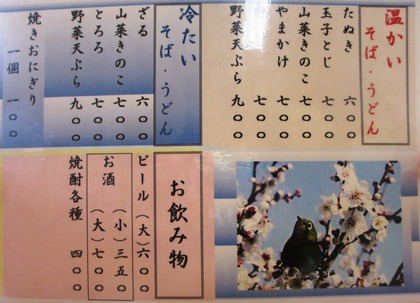 温かい
そば・うどん
たぬき 六〇〇
玉子とじ 七〇〇
山菜きのこ 七〇〇
やまかけ 七〇〇
野菜天ぷら 九〇〇
冷たい
そば・うどん
ざる 六〇〇
山菜きのこ 七〇〇
とろろ 七〇〇
野菜天ぷら 九〇〇
焼きおにぎり
一個 一〇〇
お飲み物
ビール(大)六〇〇
お酒(小)三五〇
(大)七〇〇
焼酎各種 四〇〇